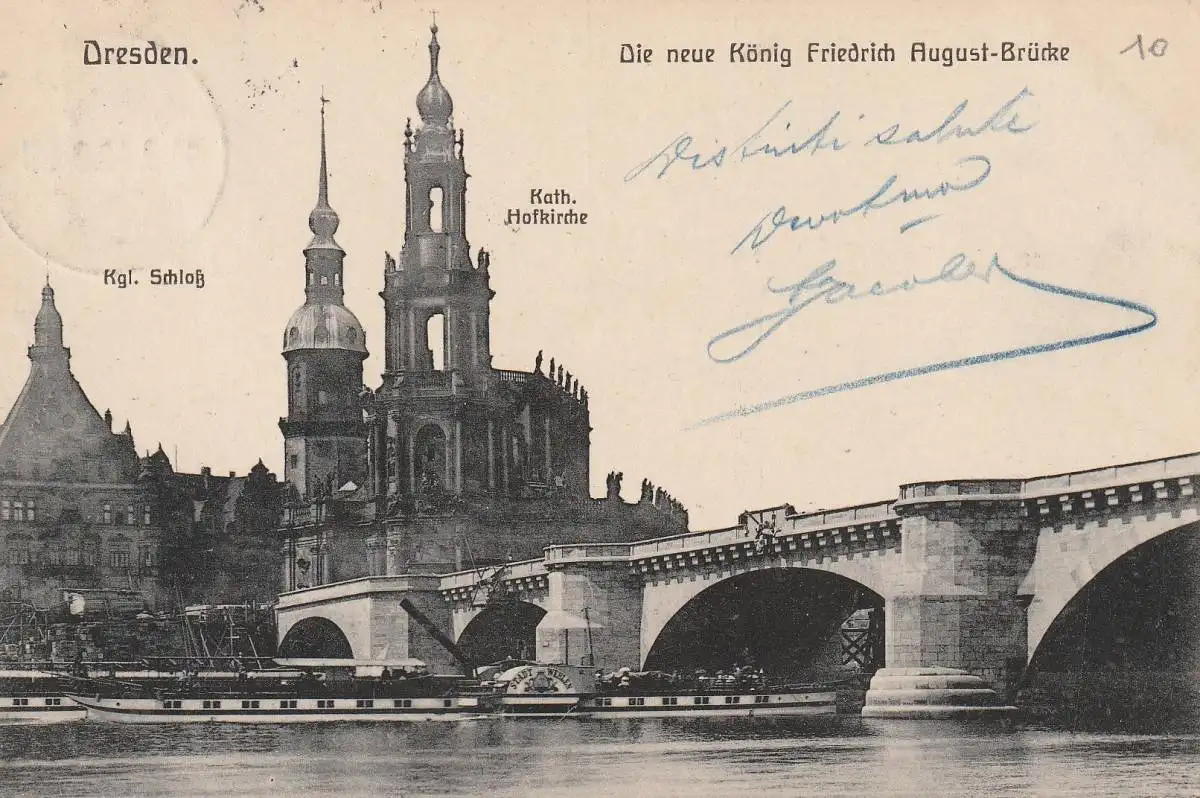 Dresden.
Die neue König Friedrich August-Brücke
10
Distinti saluti
Devotmo
Kath.
Hofkirche
Kgl. Schloß
STADT WEHLEN